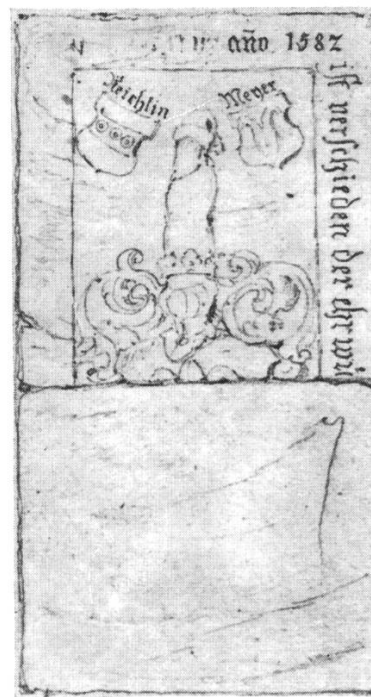 año 1582
ist verschieden der ehrwi
Reichlin
Meyer